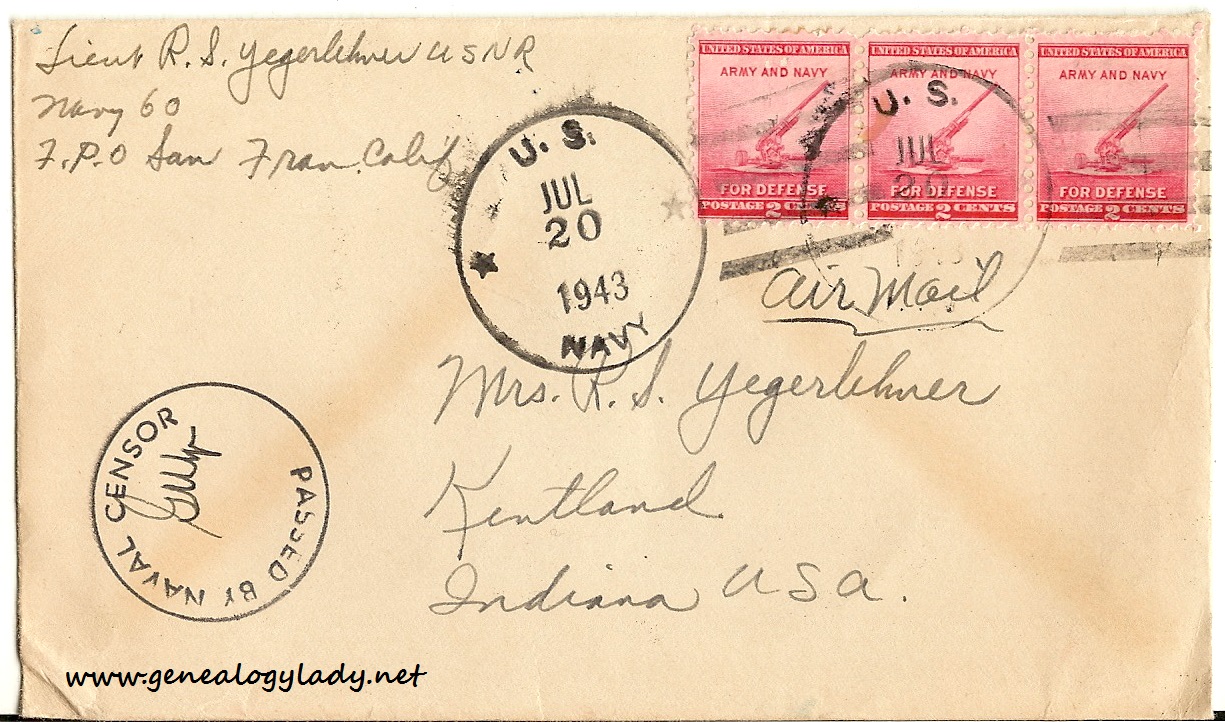 Lieut R. S. Yegerlehner USNR
Navy 60
F.P.O San Fran. Calif
UNITED STATES OF AMERICA
ARMY AND NAVY
FOR DEFENSE
POSTAGE 2 CENTS
UNITED STATES OF AMERICA
ARMY AND NAVY
FOR DEFENSE
POSTAGE 2 CENTS
UNITED STATES OF AMERICA
ARMY AND NAVY
FOR DEFENSE
POSTAGE 2 CENTS
U. S.
JUL
20
1943
NAVY
U. S.
JUL
20
1943
Air Mail
Mrs. R. S. Yegerlehner
Kentland
Indiana USA.
PASSED BY NAVAL CENSOR
www.genealogylady.net